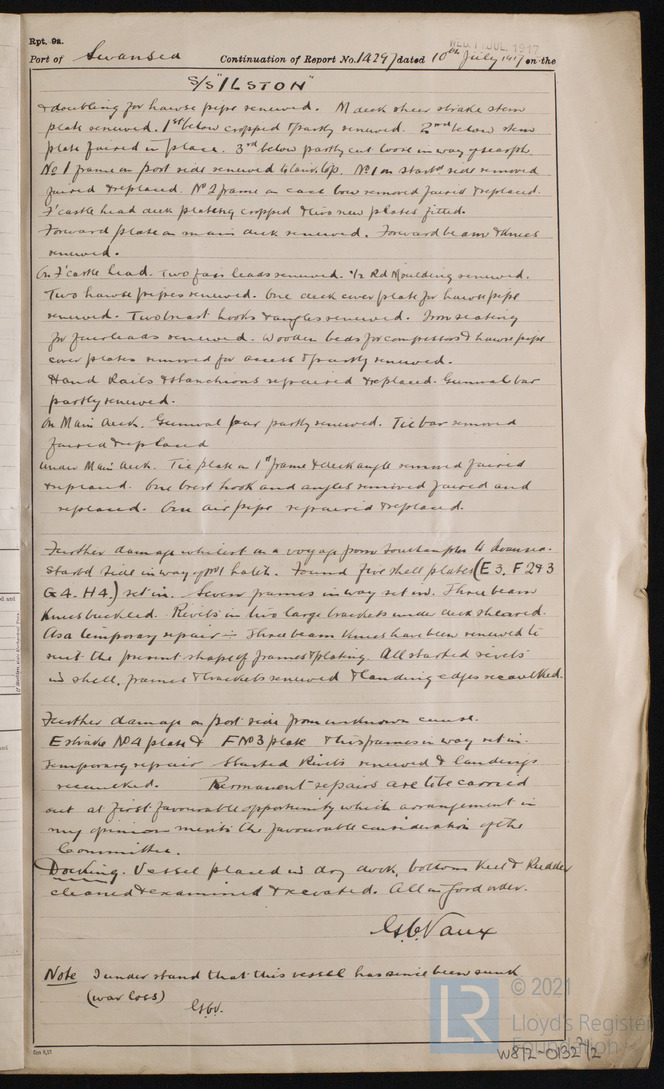 Rpt. 9a.
WED. 11 JUL. 1917
Port of Swansea Continuation of Report No. 14297 dated 10th July 1917 on the
S/S "ILSTON"
& doubling for hawse pipe renewed. M deck sheer strake stem
plate renewed. 1st below cropped & partly renewed. 2nd below stem
plate faired in place. 3rd below partly cut loose in way of scarph.
No 1 frame on port side renewed to top. No 1 on starbd side removed
faired & replaced. No 2 frame on each bow removed faired & replaced.
F'castle head deck plating cropped & two new plates fitted.
Forward plate on main deck renewed. Forward beam & knees
renewed.
On F'castle head. Two fair leads renewed. 1/2 Rd Moulding renewed.
Two hawse pipes renewed. One deck cover plate for hawse pipe
renewed. Two breast hooks & angles renewed. Iron seating
for fairleads renewed. Wooden beds for compressors & hawse pipe
cover plates removed for access & partly renewed.
Hand Rails & stanchions repaired & replaced. Gunwal bar
partly renewed.
On Main deck. Gunwal bar partly renewed. Tie bar removed
faired & replaced
Under Main deck. Tie plate on 1st frame & deck angle removed faired
& replaced. One brest hook and angles removed faired and
replaced. One air pipe repaired & replaced.
Further damage whilst on a voyage from Southampton to Swansea.
Starbd side in way of No 1 hatch. Found five shell plates (E 3. F 2 & 3
G 4. H 4.) set in. Seven frames in way set in. Three beam
knees buckled. Rivets in two large brackets under deck sheared.
As a temporary repair :- Three beam knees have been renewed to
suit the present shape of frames & plating. All started rivets
in shell, frames & brackets renewed & landing edges recaulked.
Further damage on port side from unknown cause.
E strake No 4 plate & F No 3 plate & this frames in way set in.
Temporary repair Started Rivets renewed & landings
recaulked. Permanent repairs are to be carried
out at first favourable opportunity which arrangement in
my opinion merits the favourable consideration of the
Committee.
Docking. Vessel placed in dry dock, bottom keel & Rudder
cleaned & examined & recoated. All in good order.
G.C. Vaux
Note I understand that this vessel has since been sunk
(war loss)
G.C.V.
© 2021
LR Lloyd's Register
Foundation
W872-0132 2/2